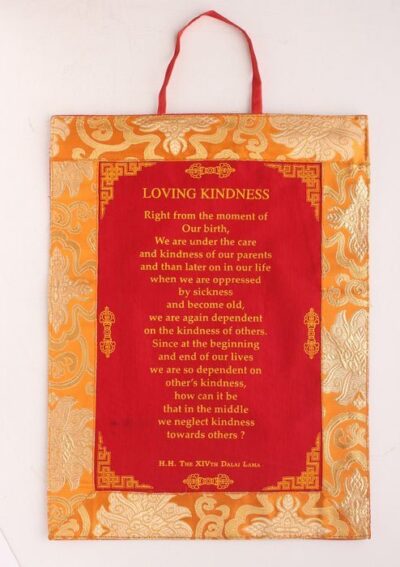 LOVING KINDNESS
Right from the moment of
Our birth,
We are under the care
and kindness of our parents
and than later on in our life
when we are oppressed
by sickness
and become old,
we are again dependent
on the kindness of others.
Since at the beginning
and end of our lives
we are so dependent on
other's kindness,
how can it be
that in the middle
we neglect kindness
towards others ?
H.H. THE XIVTH DALAI LAMA